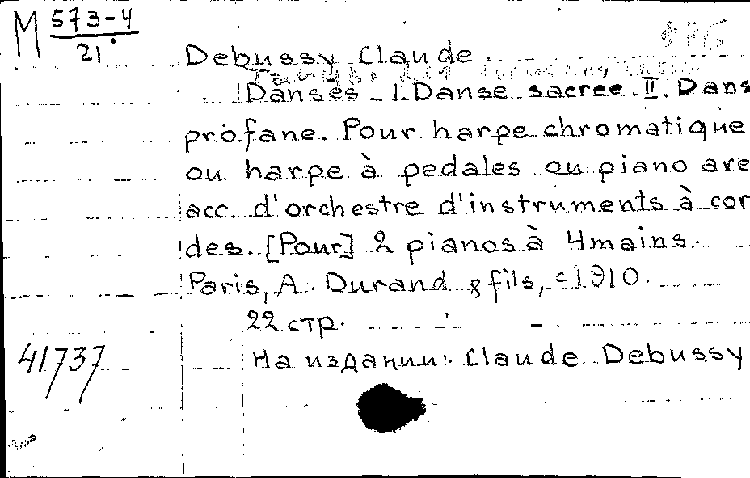 M 573-4
21
Debussy Claude
Danses. I. Danse sacree. II. Dans
profane. Pour harpe chromatique
ou harpe à pedales ou piano ave
acc. d'orchestre d'instruments à cor
des. [Pour] 2 pianos à 4 mains.
Paris, A. Durand & fils, c1910.
22 стр.
41737
На издании: Claude Debussy